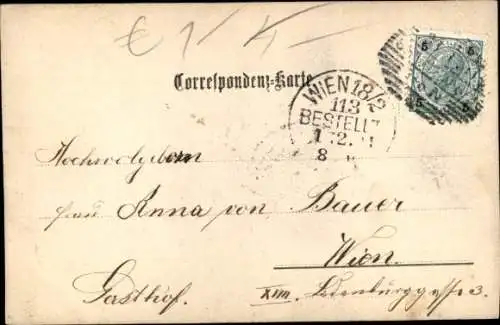 € 1/-
5 5
5 5
Correspondenz-Karte
WIEN 18/2
113
BESTELLT
8
Hochwolgeboren
Frau Anna von Bauer
Wien.
Gasthof. XIII.
3.